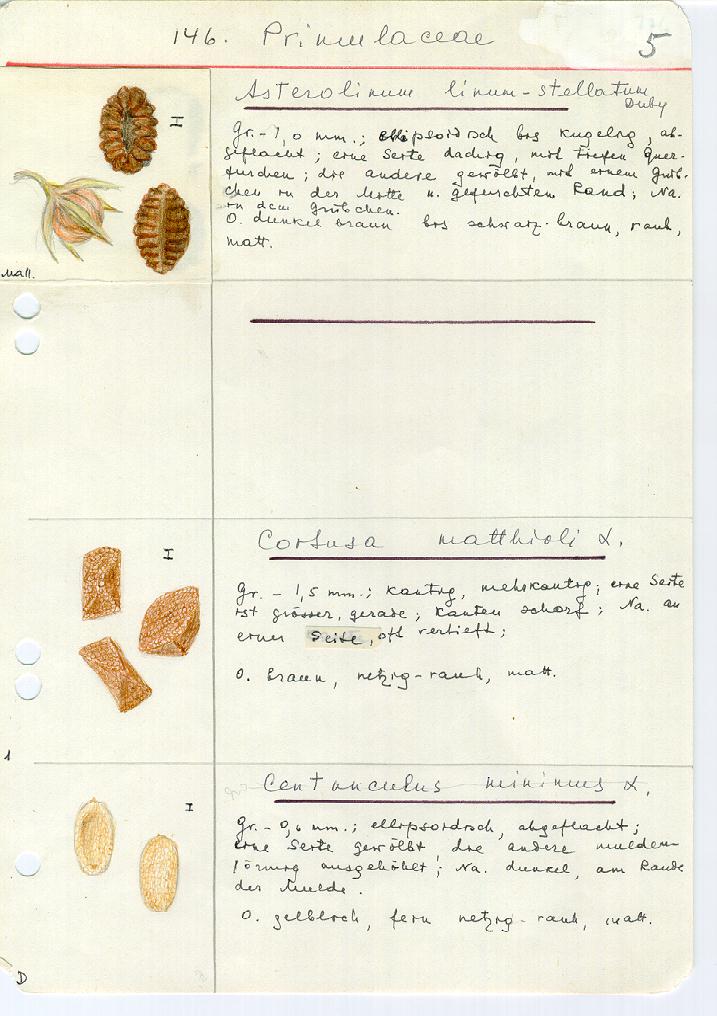 146. Primulaceae
5
Asterolinum linum-stellatum
Duby
Gr. - 1,0 mm.; ellipsoidisch bis kugelig, ab-
geflacht; eine Seite dachig, mit tiefen Quer-
furchen; die andere gewölbt, mit einem Grüb-
chen in der Mitte u. gefurchtem Rand; Na.
in dem Grübchen.
O. dunkel braun bis schwarz-braun, rauh,
matt.
Mall.
Cortusa matthioli L.
Gr. - 1,5 mm.; kantig, mehrkantig; eine Seite
ist grösser, gerade; Kanten scharf; Na. an
einer Seite, oft vertieft;
O. braun, netzig-rauh, matt.
1
Centunculus minimus L.
Gr. - 0,6 mm.; ellipsoidisch, abgeflacht;
eine Seite gewölbt, die andere mulden-
förmig ausgehöhlt; Na. dunkel, am Rande
der Mulde.
O. gelblich, fein netzig-rauh, matt.
D